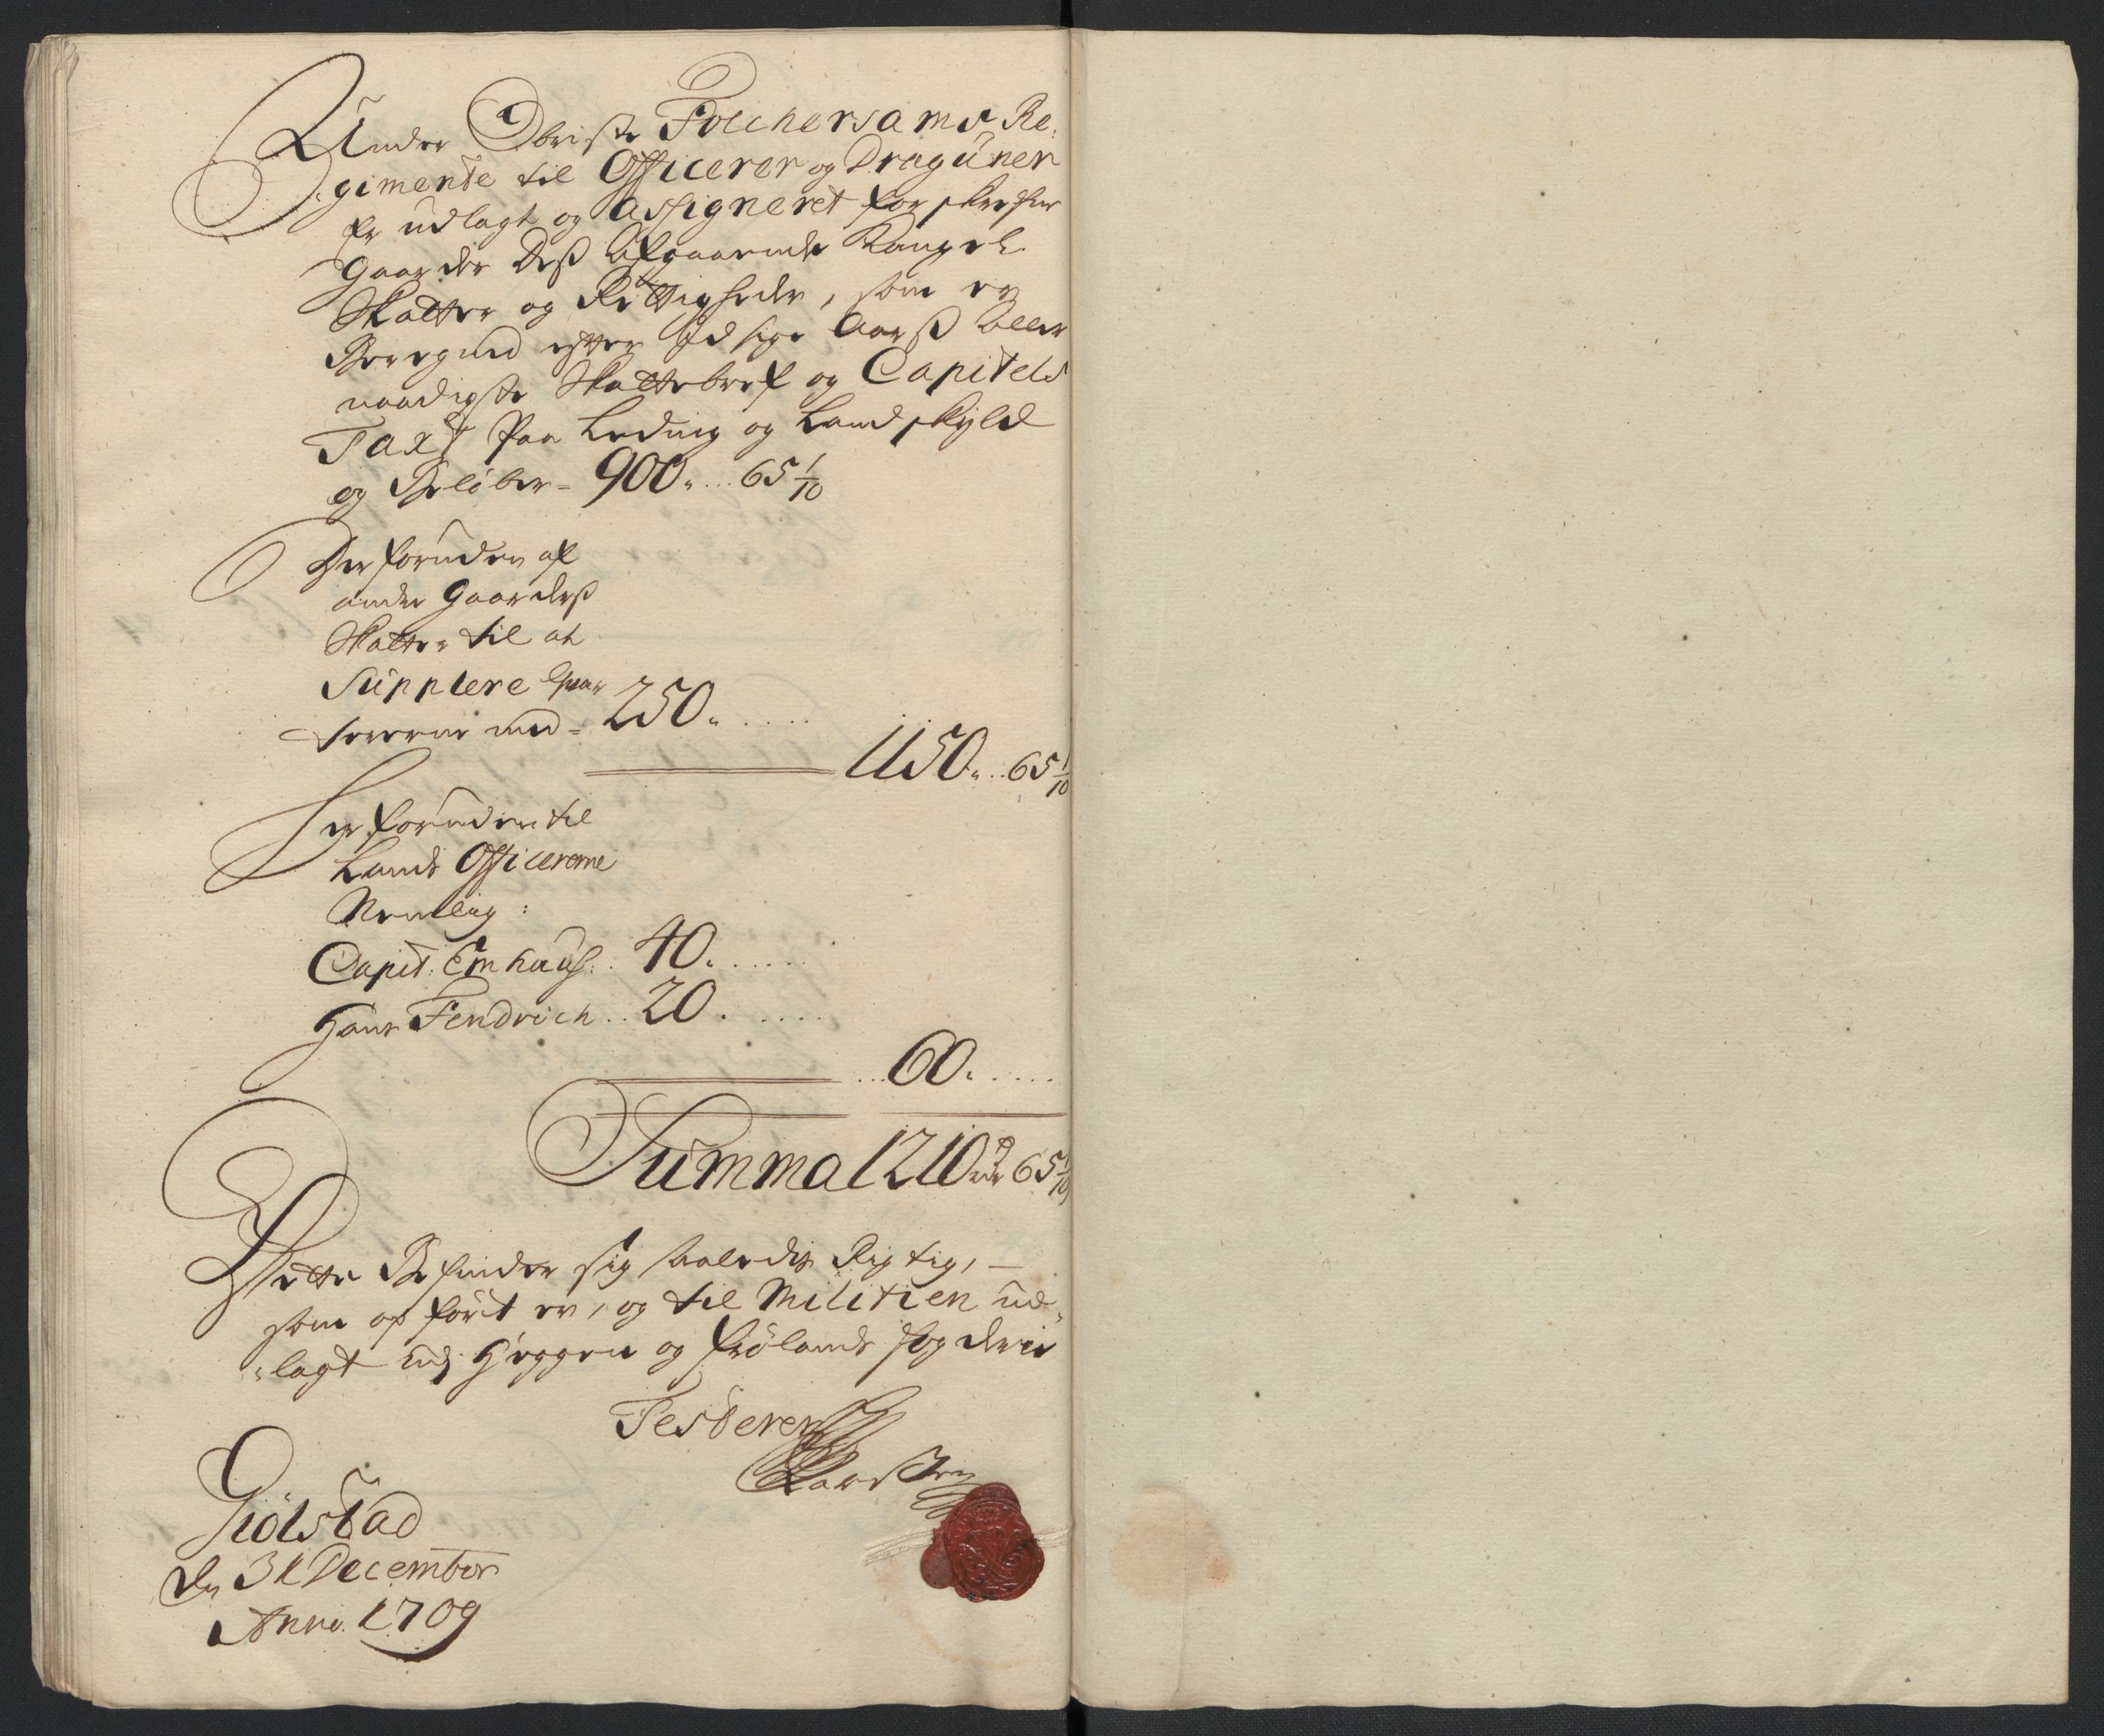 Under Obriste Folchersams Re,
gimente til Officerer og Dragüner
Er udlagt og assigneret forskrefne
Gaarder Dess Afgaaende
Skatter og Rettigheder, som er
Beregned efter Idsige Aarss aller
naadigste Skattebref og Capitels
Taxt Paa Leding og Landskyld
og Beløber = 900 „ .. 65 1/10
Der foruden af
andre Gaarders
Skatter til at
Supplere Qvar
tererne med = 250 „ ....
1150 „ .. 65 1/10
Her foruden til
Lands Officererne
Nemlig:
Capit: .. 40 „ .....
Hans Fendrich .. 20 . .....
... 60 „ ....
Summa 1210 rdr 65 1/10
Dette Befinder sig saaledis Rigtig, –
som opført er, og til Militien ud„
„lagt udj Heggen og Frølands fogderie
Testerer
Giølstad
den 31 December
Anno. 1709